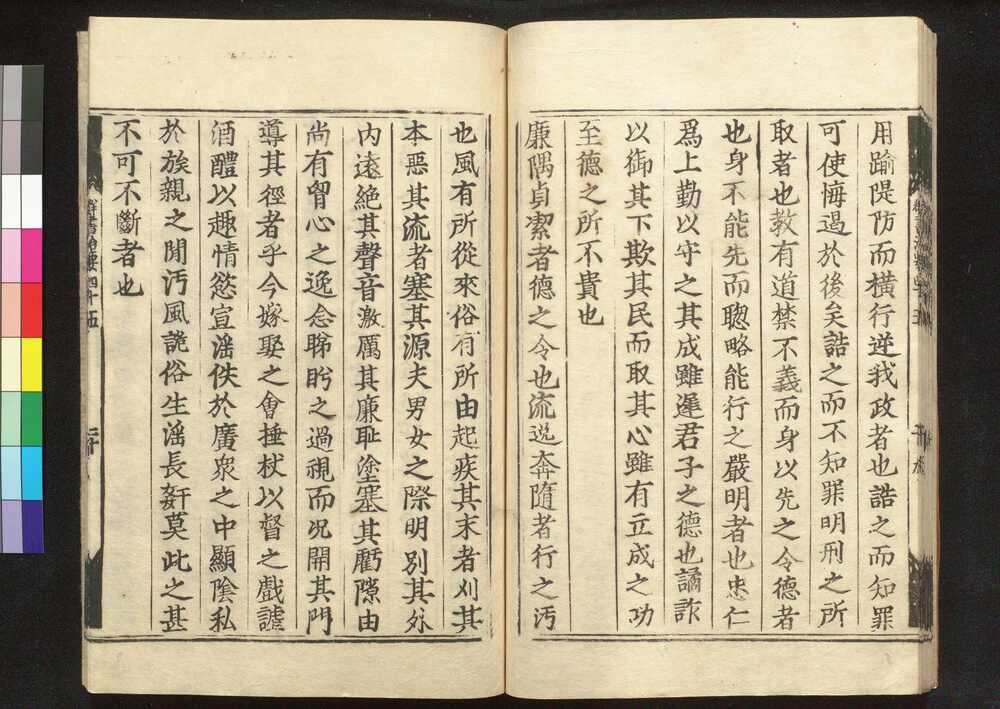 用踰隄防而橫行逆我政者也誥之而知罪
可使悔過於後矣誥之而不知罪明刑之所
取者也敎有道禁不義而身以先之令德者
也身不能先而聰略能行之嚴明者也忠仁
爲上勤以守之其成雖遲君子之德也譎詐
以御其下欺其民而取其心雖有立成之功
至德之所不貴也
廉隅貞潔者德之令也流逸奔隨者行之汚
也風有所從來俗有所由起疾其末者刈其
本惡其流者塞其源夫男女之際明別其外
內遠絕其聲音激厲其廉耻塗塞其虧隙由
尚有胷心之逸念睇盻之過視而況開其門
導其徑者乎今嫁娶之會捶杖以督之戲謔
酒醴以趣情慾宣淫佚於廣衆之中顯陰私
於族親之閒汚風詭俗生淫長姧莫此之甚
不可不斷者也
群書治要四十五
二十